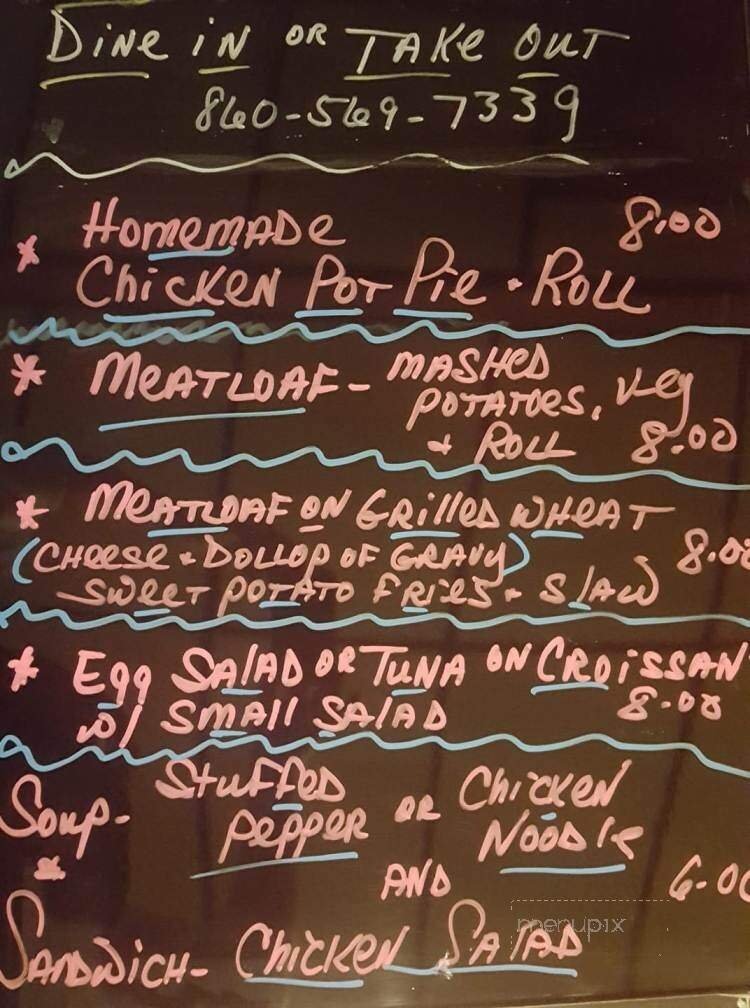 DINE IN OR TAKE OUT
860-569-7339
* HOMEMADE 8.00
CHICKEN POT PIE + ROLL
* MEATLOAF - MASHED
POTATOES, VEG
+ ROLL 8.00
* MEATLOAF ON GRILLED WHEAT
(CHEESE + DOLLOP OF GRAVY) 8.00
SWEET POTATO FRIES + SLAW
* EGG SALAD OR TUNA ON CROISSAN
W/ SMALL SALAD 8.00
STUFFED OR CHICKEN
SOUP- PEPPER NOODLE
& AND 6.00
menupix
SANDWICH- CHICKEN SALAD